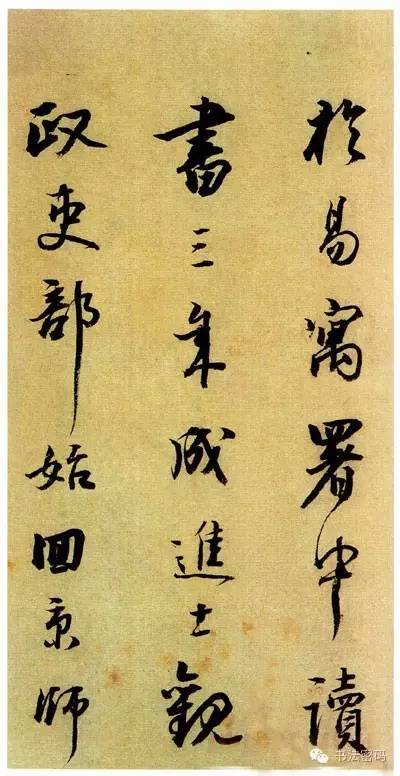 於易寓署中讀
書三年成進士觀
政吏部始回京師
书法密码